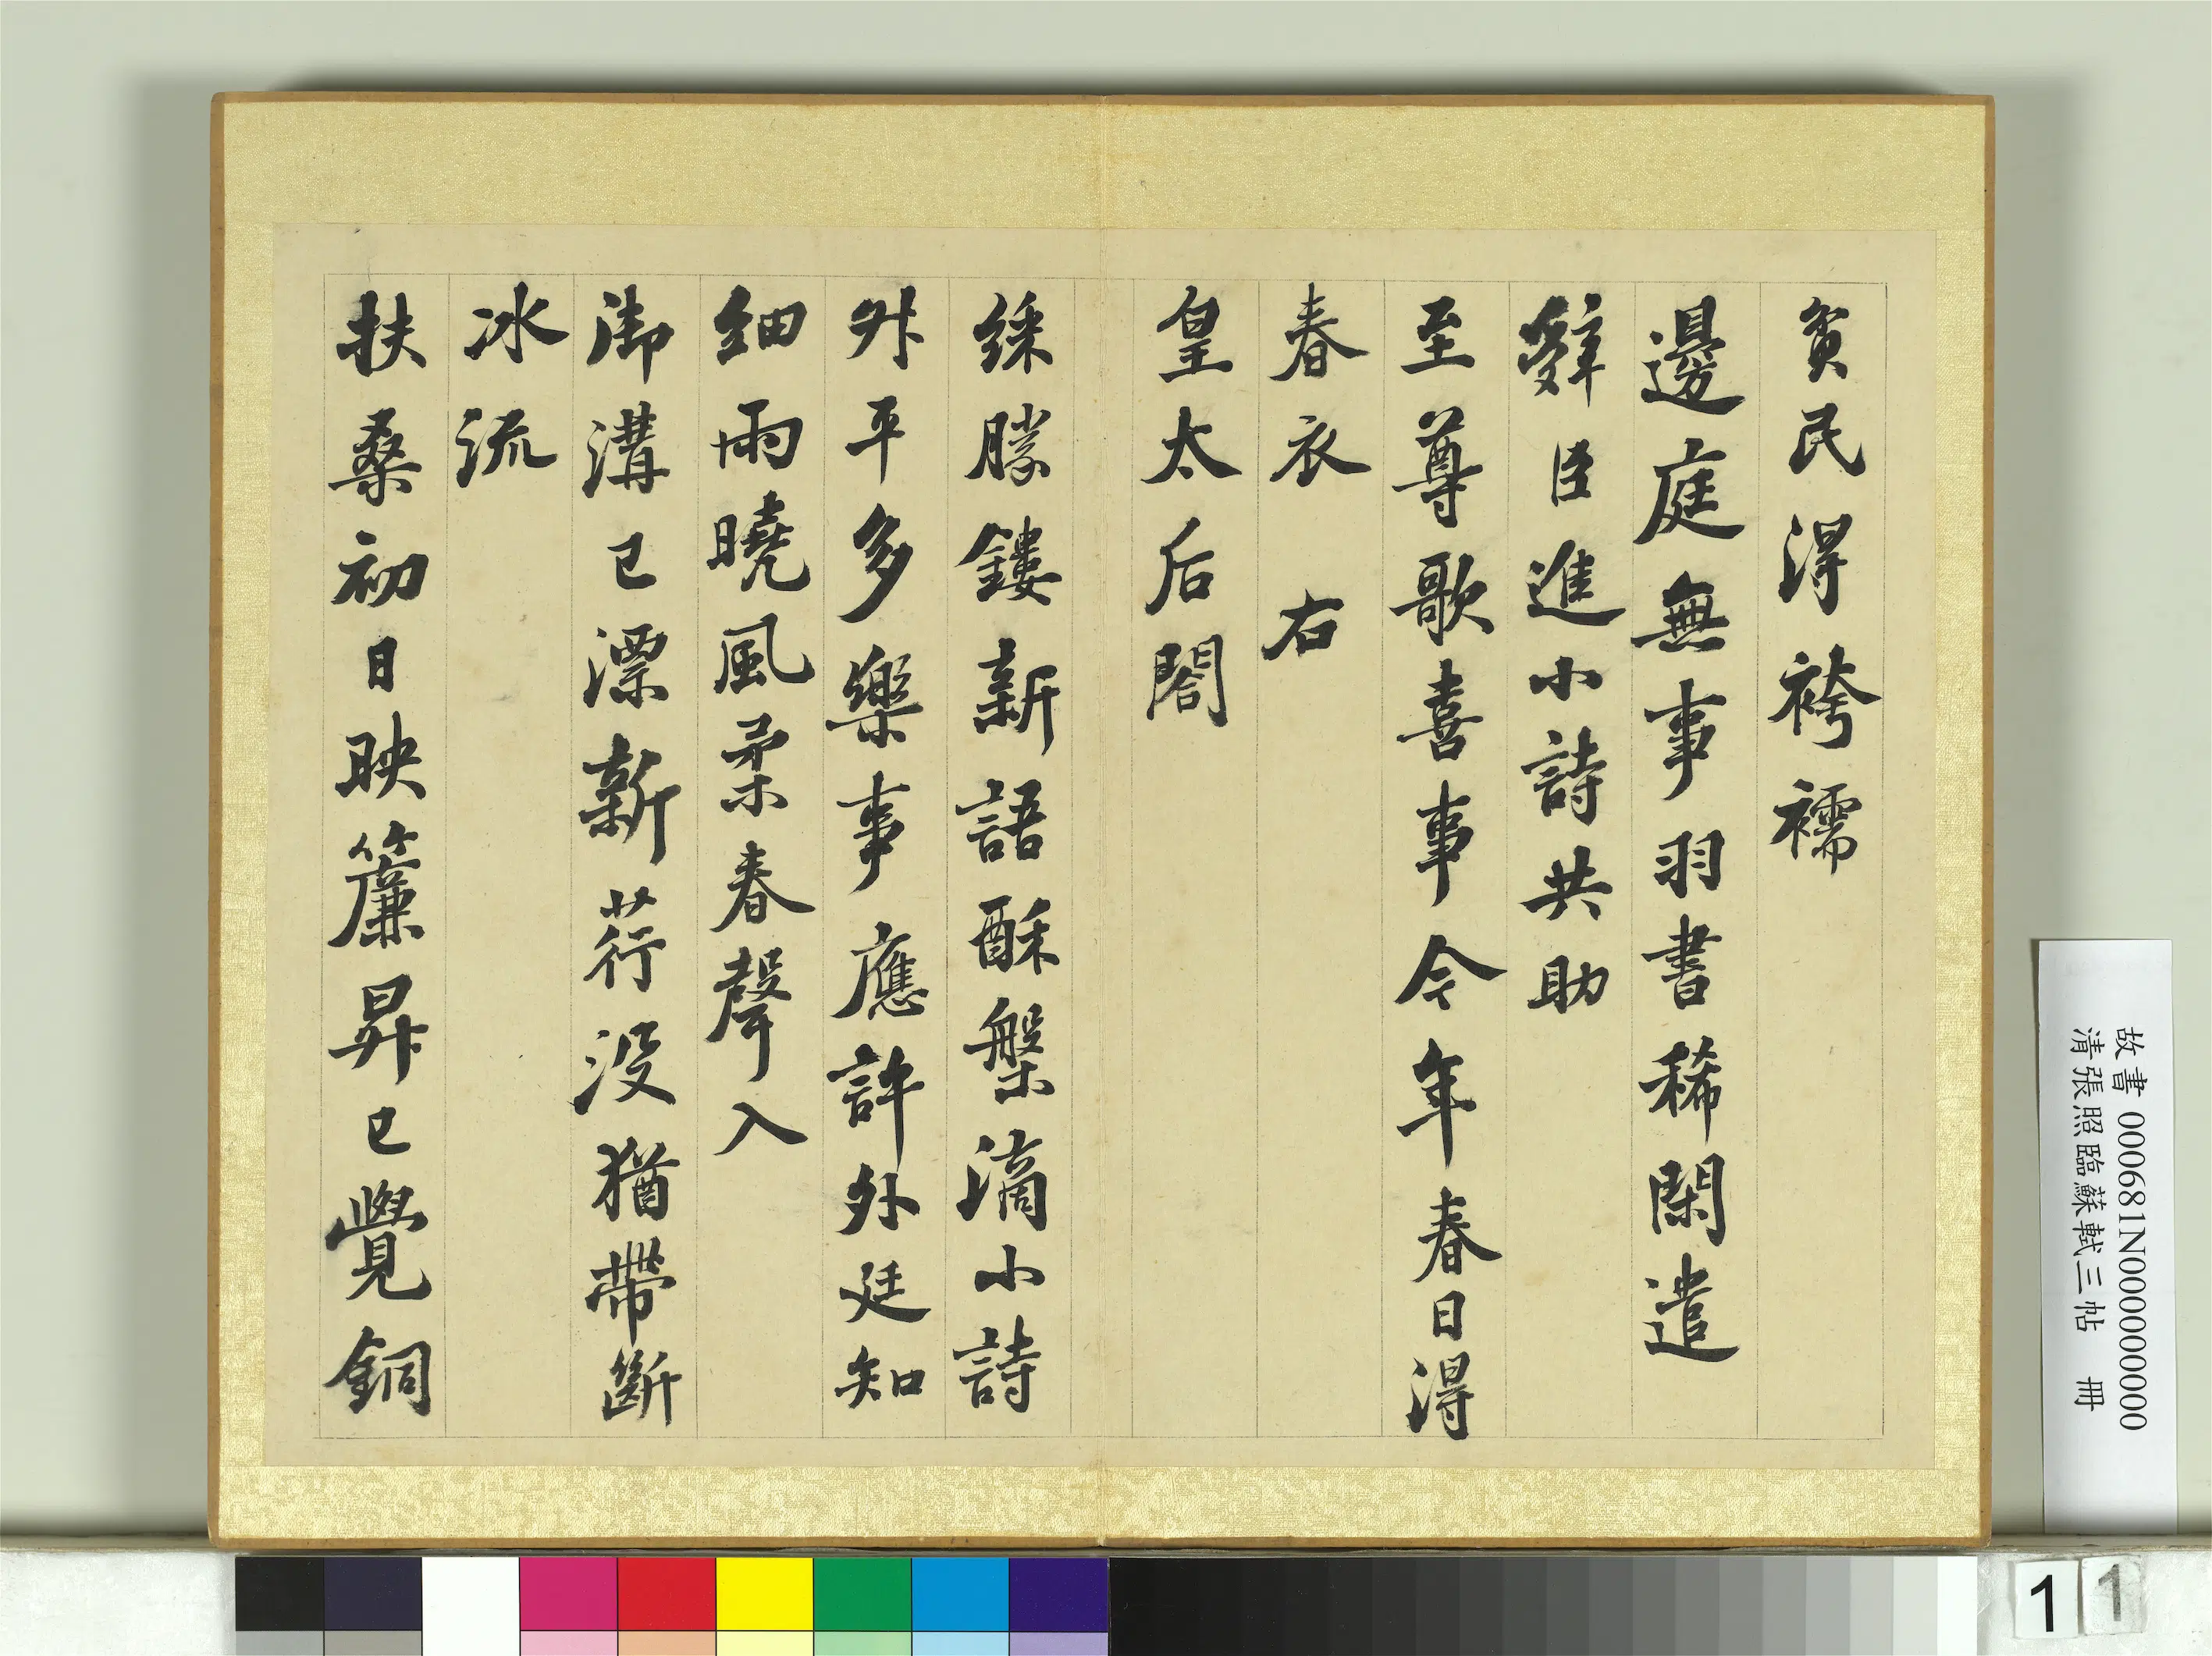 貧民得袴襦
邊庭無事羽書稀閑遣
辤臣進小詩共助
至尊歌喜事今年春日得
春衣 右
皇太后閤
綵勝鏤新語酥槃滴小詩
外平多樂事應許外廷知
細雨曉風柔春聲入
御溝已漂新荇没猶帶斷
冰流
扶桑初日映簾昇已覺銅
故書 000681N000000000
清張照臨蘇軾三帖 冊
1
1